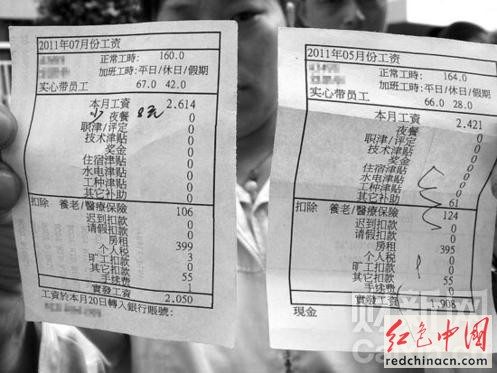 2011年07月份工资
正常工時: 160.0
加班工時:平日/休日/假期
实心带员工 67.0 42.0
本月工资 2.614
少 夜餐 8元 0
职津/评定 0
技术津贴 0
奖金 0
住宿津贴 0
水电津贴 0
工种津贴 0
其它补助 0
扣除 養老/醫療保險 106
迟到扣款 0
请假扣款 0
房租 399
个人税 3
旷工扣款 0
其它扣款 55
手续费 1
實發工资 2.050
工資於本月20日轉入銀行賬號:
2011年05月份工资
正常工時: 164.0
加班工時:平日/休日/假期
实心带员工 66.0 28.0
本月工资 2.421
夜餐 0
职津/评定 0
技术津贴 0
奖金 0
住宿津贴 0
水电津贴 0
工种津贴 0
其它补助 61
扣除 養老/醫療保險 124
迟到扣款 0
请假扣款 0
房租 395
个人税 0
旷工扣款 0
其它扣款 55
手续费 0
實發工资 1,908
現金
财新网
红色中国
redchinacn.com